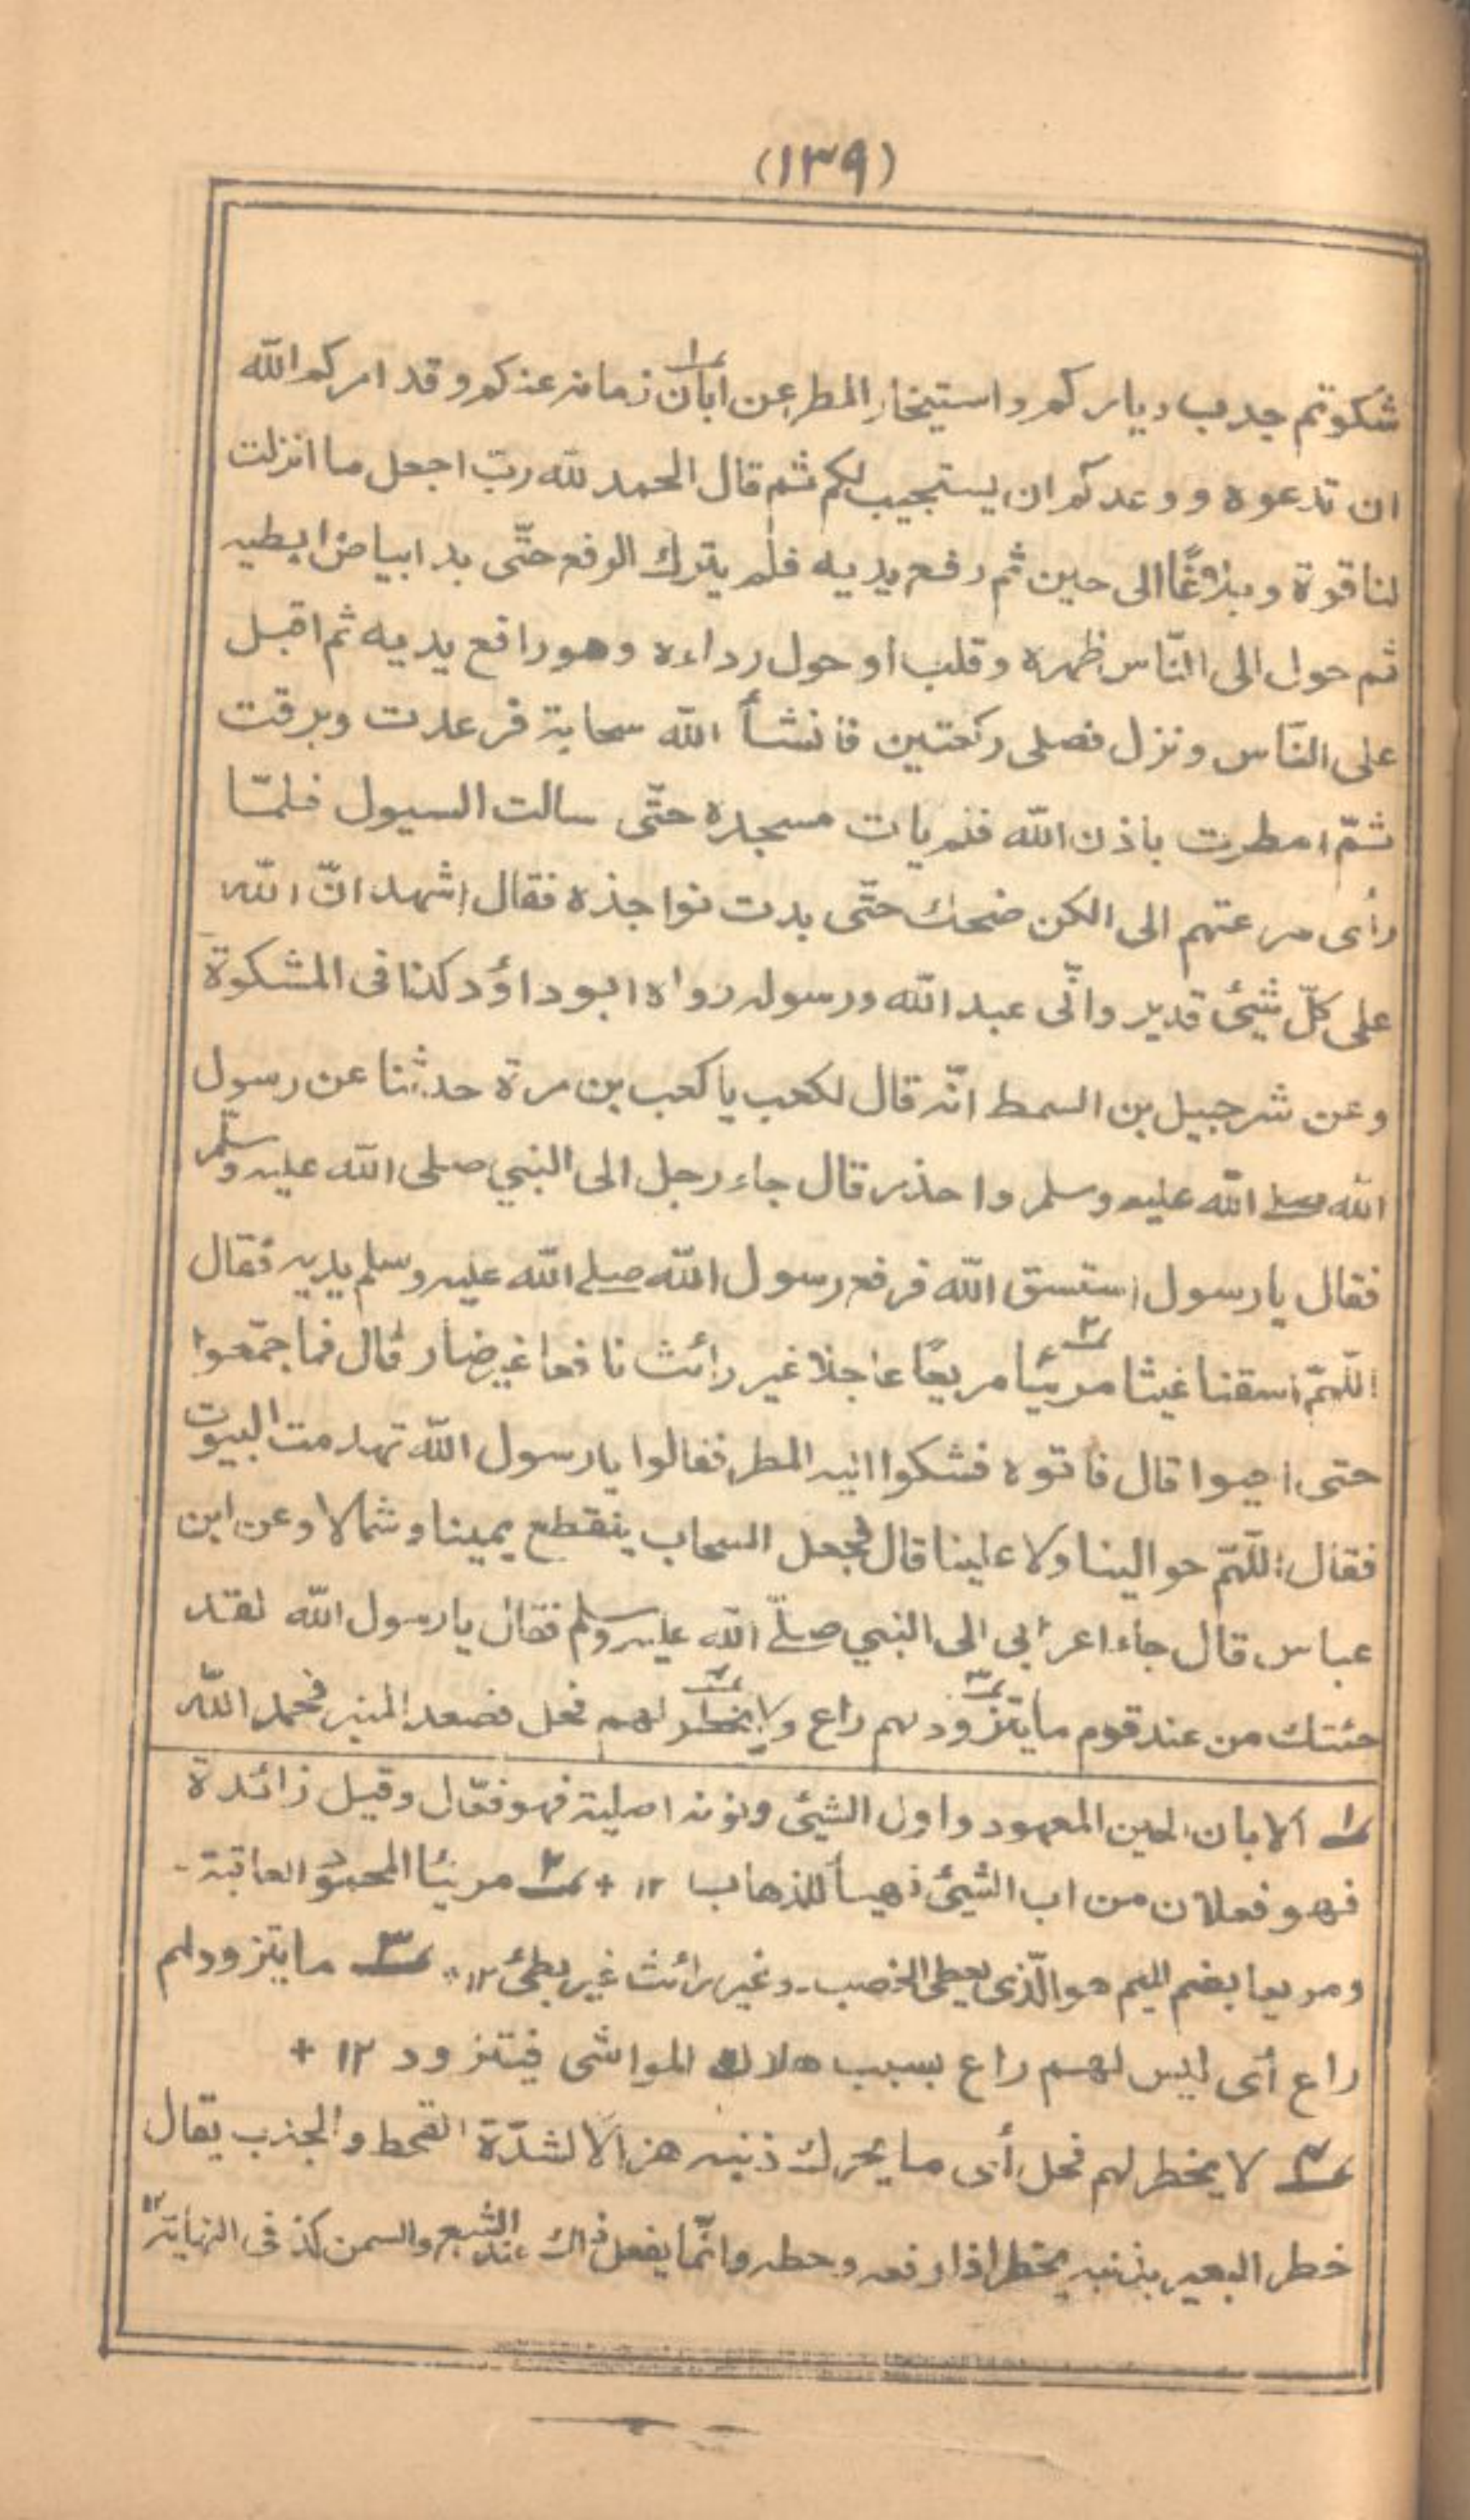 (١٣٩)
شكوتم جدب دياركم واستيخار المطر عن ابان١ زمانه عنكم وقد امركم الله
ان تدعوه ووعدكم ان يستجيب لكم ثم قال الحمد لله رب اجعل ما انزلت
لنا قوة وبلاغًا الى حين ثم رفع يديه فلم يترك الرفع حتّى بدا بياض ابطيه
ثم حول الى النّاس ظهره وقلب او حول رداءه وهو رافع يديه ثم اقبل
على النّاس ونزل فصلى ركعتين فانشأ الله سحابة فرعدت وبرقت
ثمّ امطرت باذن الله فلم يات مسجده حتّى سالت السيول فلمّا
رأى سرعتهم الى الكن ضحك حتّى بدت نواجذه فقال اشهد انّ الله
على كلّ شيئ قدير وانّى عبد الله ورسوله رواه ابوداؤد كذا فى المشكوة
وعن شرجبيل بن السمط انّه قال لكعب يا كعب بن مرة حدثنا عن رسول
الله صلى الله عليه وسلم واحذر قال جاء رجل الى النبي صلى الله عليه وسلّم
فقال يا رسول استسق الله فرفع رسول الله صلى الله عليه وسلم يديه فقال
اللّهمّ اسقنا غيثا مريئًا٢ مريعًا عاجلا غير رائث نافعا غير ضار قال فما جمّعوا
حتى احيوا قال فاتوه فشكوا اليه المطر فقالوا يا رسول الله تهدمت البيوت
فقال اللّهمّ حوالينا ولا علينا قال فجعل السحاب ينقطع يمينا وشمالا وعن ابن
عباس قال جاء اعرابى الى النبي صلى الله عليه وسلم فقال يا رسول الله لقد
جئتك من عند قوم ما يتزود٣ لهم راع ولا يخطر٤ لهم فحل فصعد المنبر فحمد الله
١ الابان الحين المعهود واول الشيئ ونونه اصلية فهو فعّال وقيل زائدة
فهو فعلان من اب الشيئ تهيأ للذهاب ١٢ + ٢ مريئا المحمود العاقبة -
ومريعا بضم الميم هو الّذى يعطى الخصب - وغير رائث غير بطئ ١٢ ٣ ما يتزود لهم
راع أى ليس لهم راع بسبب هلاك المواشى فيتزود ١٢ +
٤ لا يخطر لهم فحل أى ما يحرك ذنبه هزالا لشدّة القحط والجذب يقال
خطر البعير بذنبه يخطر اذا رفعه وحطه وانّما يفعل ذالك عند الشبع والسمن كذا فى النهاية ١٢